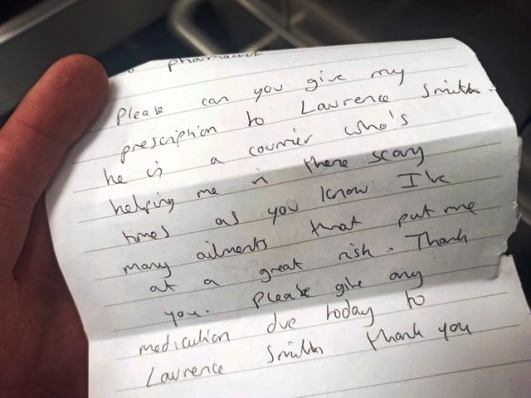 pharmacist
Please can you give my
prescription to Lawrence Smith.
he is a courrier who's
helping me in there scary
times as you know I've
many ailments that put me
at a great risk. Thank
you. Please give any
medication due today to
Lawrence Smith thank you